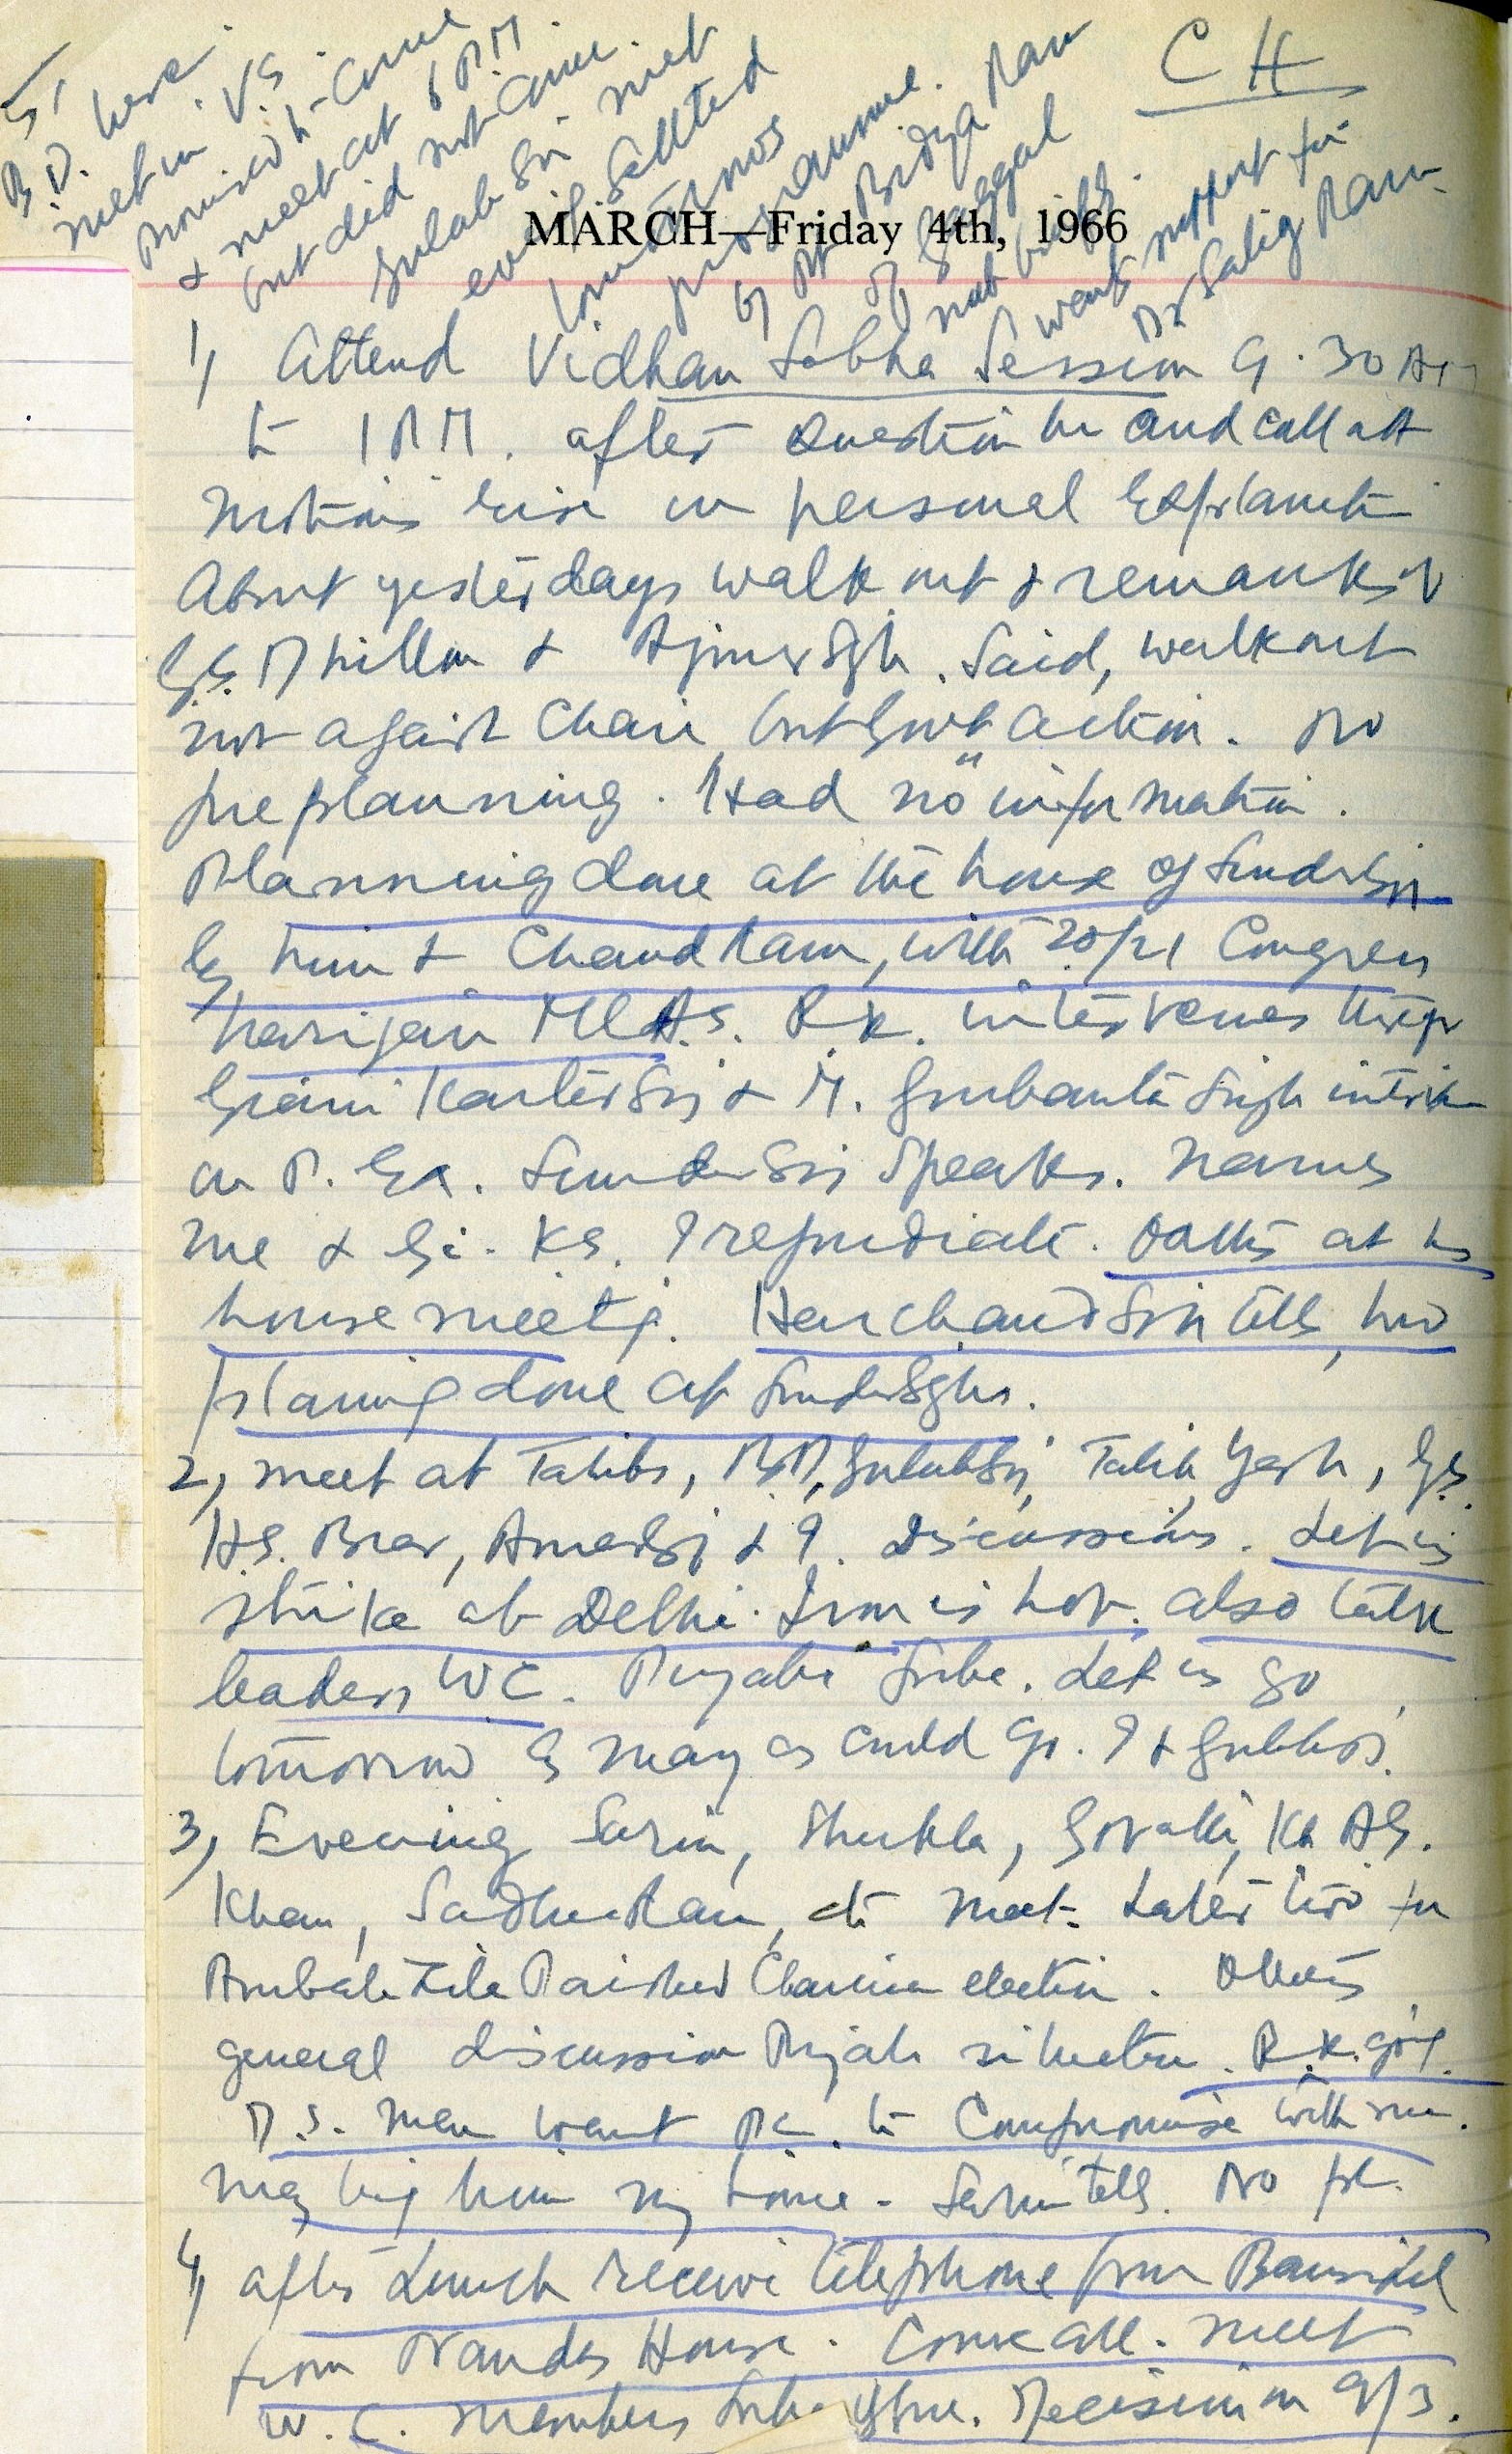 CH
5/
B.D. here.
meet in V.S.
promised to come
& meet at 6 PM
but did not come.
Gulab Sri meet
evening. Settled
tomorrows
programme.
by Pt Bidya Ram
of Saggal
nub
wants support for
Dr Salig Ram.
MARCH—Friday 4th, 1966
1/ Attend Vidhan Sabha Session 9.30 AM
to 1 PM. after Question hr and call att
motions rise on personal Explanati
About yesterdays walk out & remarks of
G.S. Dhillon & Ajmer Sgh. Said, walkout
not against Chair but Govt action. No
preplanning. Had no information.
Planning done at the house of Sunder Sin
by him & Chand Ram, with 20/21 Congress
harijan MLAs. R.K. intervenes
Giani Kartar Sij & M. Gurbanta Singh
on P. Ex. Sunder Sij Speaks. names
me & Gi. K.S. I repudiate. Oaths at his
house meetg. Harchand Sin tells how
planing done at Sunder Sghs.
2, meet at Talibs, B.D, Gulab Sij, Talib, Yash, G.S.
H.S. Brar, Amar Sij & I. Discussions. Let us
strike at Delhi. Iron is hot. also talk
leaders W C. Punjabi Suba. Let us go
tomorrow as many as could go. I &
3, Evening Sarin, Shukla, Kh A.G.
Khan, Sadhu Ram, etc meet. Later two for
Ambala Zila Parishad Chairman election. Others
general discussion Punjab situation. R.K. going.
D.S. man want R.K. to Compromise with me.
may bring him my home. Sarin tells. No pl.
4, after Lunch receive telephone from Bansi Lal
from Nandas House. Come all. meet
W.C. members Suba issue. Decision on 9/3.